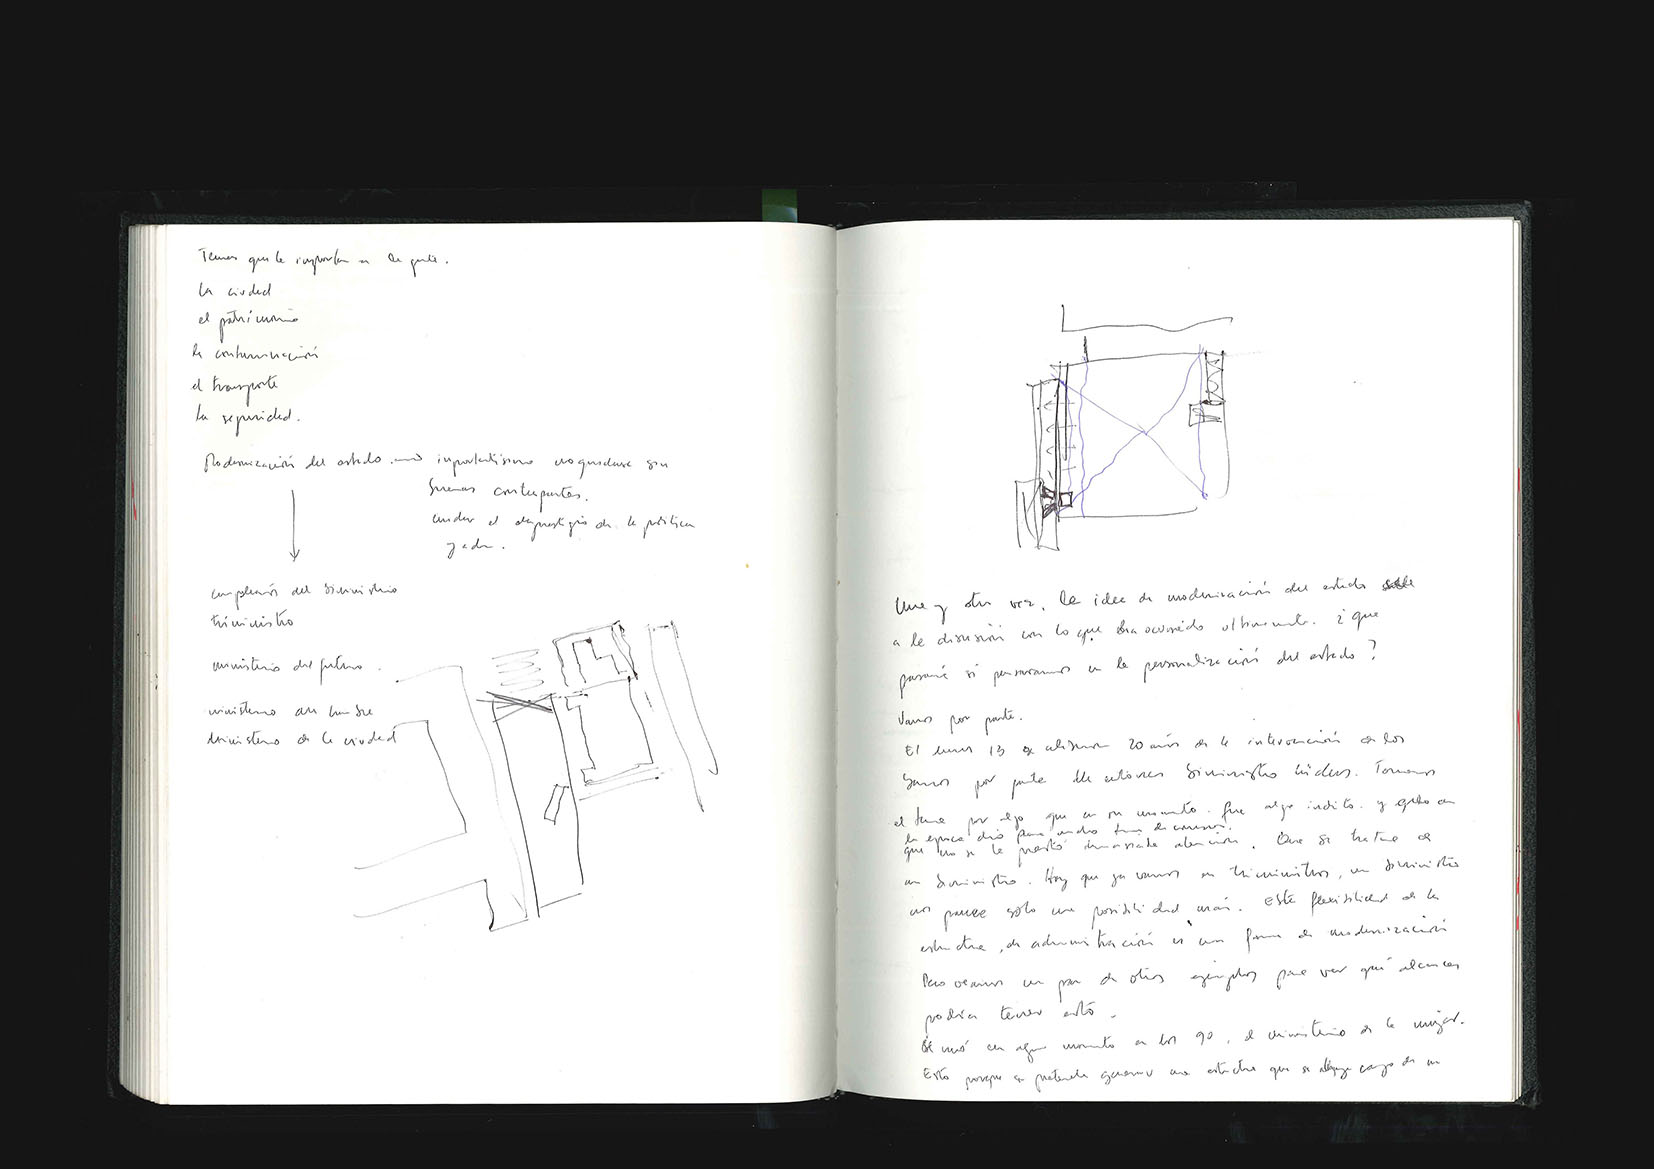 Temas que le importan a la gente.
La ciudad
el patrimonio
la contaminación
el transporte
La seguridad.
Modernización del estado importantísimo no quedarse sin
buenas contrapartes.
el desprestigio de la política
ampliación del biministerio
triministro
ministerio del futuro.
ministerio del hambre
Ministerio de la ciudad
Una y otra vez, la idea de modernización del estado
a la discusión con lo que ha ocurrido ultimamente. ¿que
pasaría si pensaramos en la personalización del estado?
Vamos por parte.
El lunes 13 se 20 años de la intervención de los
por parte del biministro Tomemos
el tema por algo que en su momento. fue algo inédito. y
la época dio para
que no se le prestó demasiada atención. Que se tratara de
un biministro. Hoy que ya vamos en triministros, un biministro
nos parece sólo una posibilidad más. Esta flexibilidad de la
estructura de administración es una forma de modernización
Pero veamos un par de otros ejemplos para ver qué alcances
podría tener esto.
Se creó en algun momento en los 90, el ministerio de la mujer.
Esto porque se pretende generar una estructura que se haga cargo de un